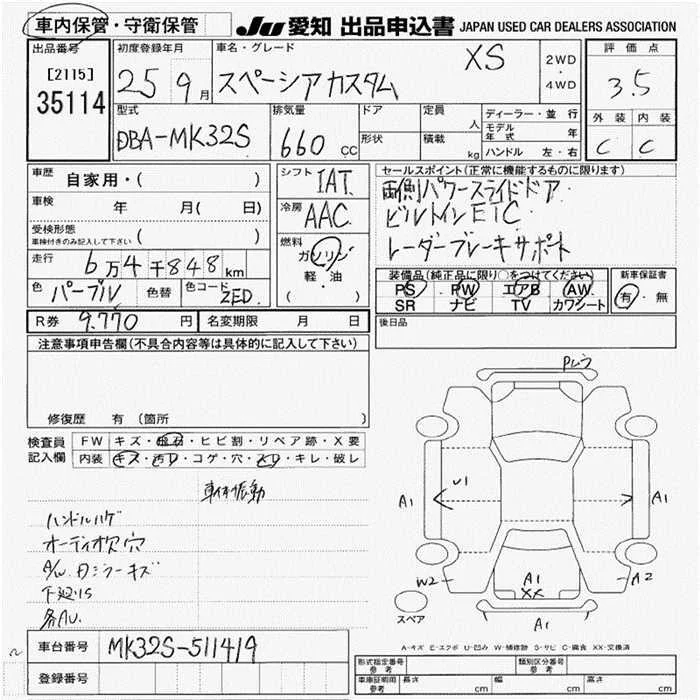 車内保管・守衛保管
JU 愛知 出品申込書 JAPAN USED CAR DEALERS ASSOCIATION
出品番号
[2115]
35114
初度登録年月
25 9月
車名・グレード
スペーシアカスタム XS
2WD
・
4WD
評価点
3.5
外装 内装
C C
型式
DBA-MK32S
排気量
660 CC
ドア
形状
定員 人
積載 kg
ディーラー・並行
モデル年式 年
ハンドル 左・右
車歴 自家用・( )
車検 年 月( 日)
受検形態
車検付きのみ記入して下さい ( )
走行 6万4千848km
色 パープル 色替 色コード ZED
シフト IAT
冷房 AAC
燃料
ガソリン
軽・油
( )
セールスポイント(正常に機能するものに限ります)
両側パワースライドドア
ビルトインETC
レーダーブレーキサポート
装備品(純正品に限り○をつけてください)
PS PW エアB AW
SR ナビ TV カワシート
新車保証書
有・無
R券 9.770 円 名変期限 月 日
後日品
注意事項申告欄(不具合内容等は具体的に記入して下さい)
修復歴 有 (箇所 )
検査員
記入欄
FW キズ・飛石・ヒビ割・リペア跡・X要
内装 キズ・汚レ・コゲ・穴・スレ・キレ・破レ
ハンドルハゲ
オーディオ欠 穴
下廻りS
U1
A1
A1
W2
A2
A1
XX
A1
スペア
A-キズ E-エクボ U-凹み W-補修跡 S-サビ C-腐食 XX-交換済
車台番号 MK32S-511419
登録番号
型式指定番号
参考
類別区分番号
参考
車庫証明用
参考
長さ cm 幅 cm 高さ cm